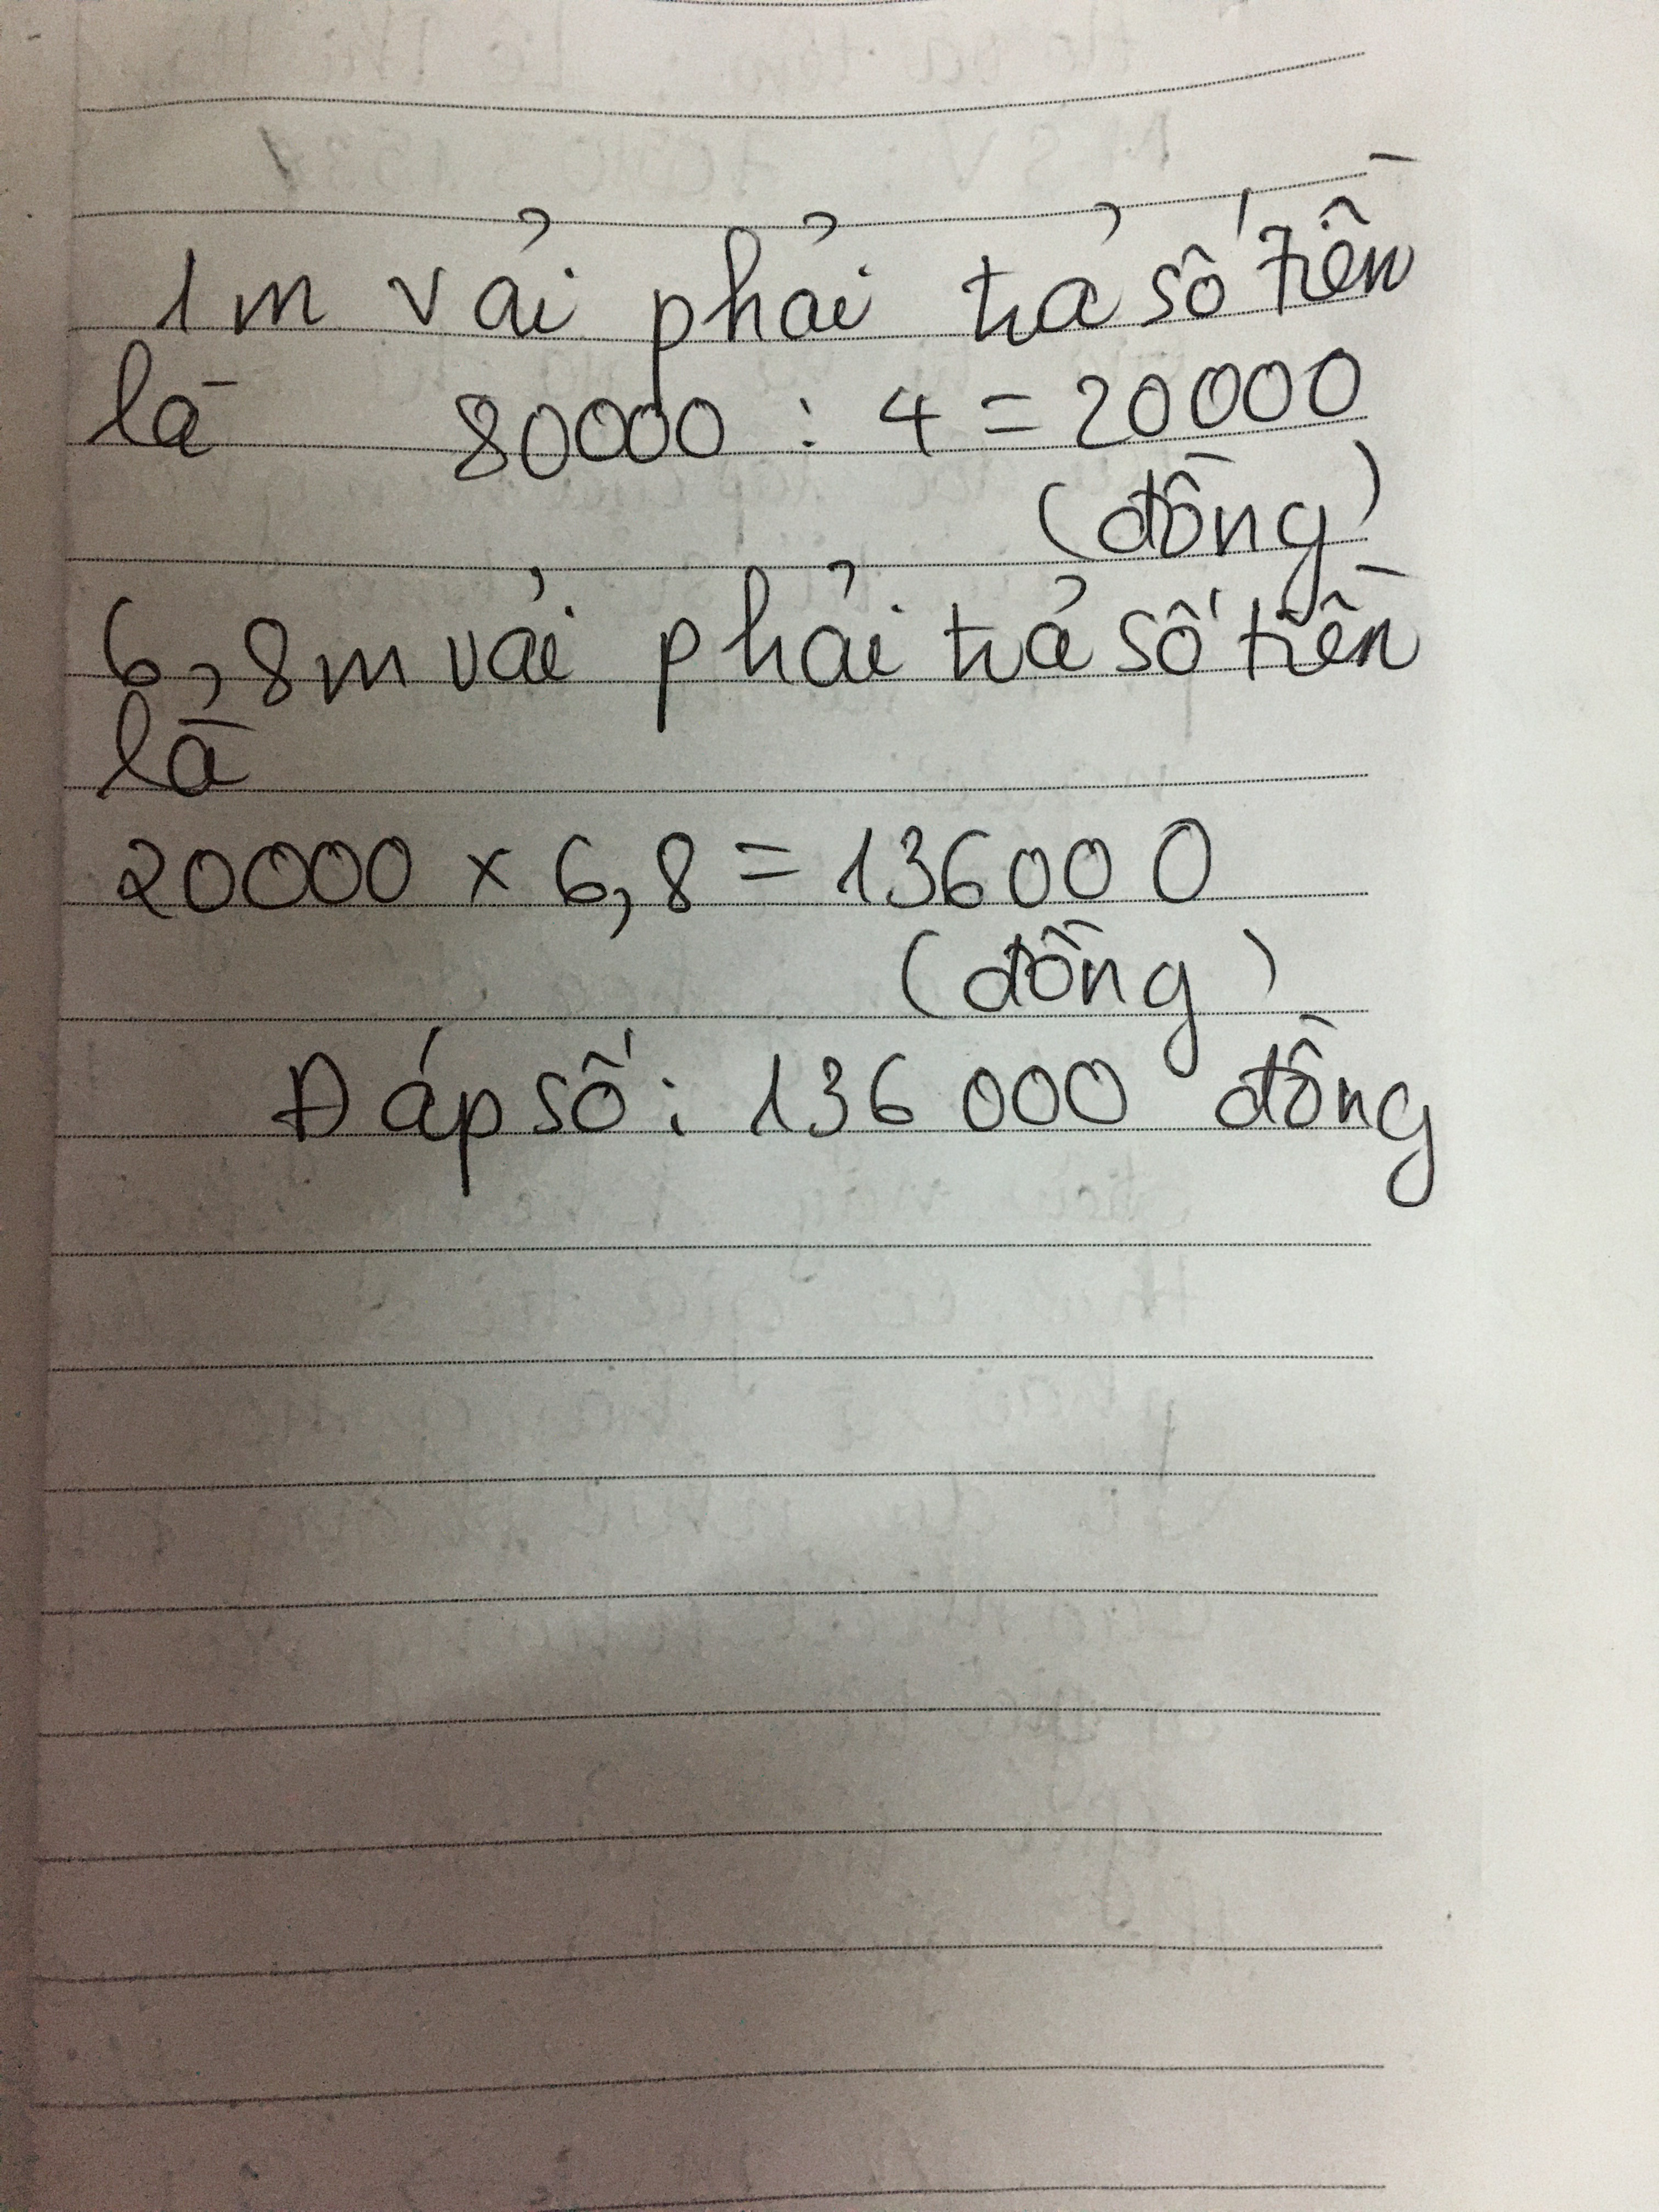 1m vải phải trả số tiền
là 80000 : 4 = 20000
(đồng)
6,8m vải phải trả số tiền
là
20000 x 6,8 = 136000
(đồng)
Đáp số: 136 000 đồng